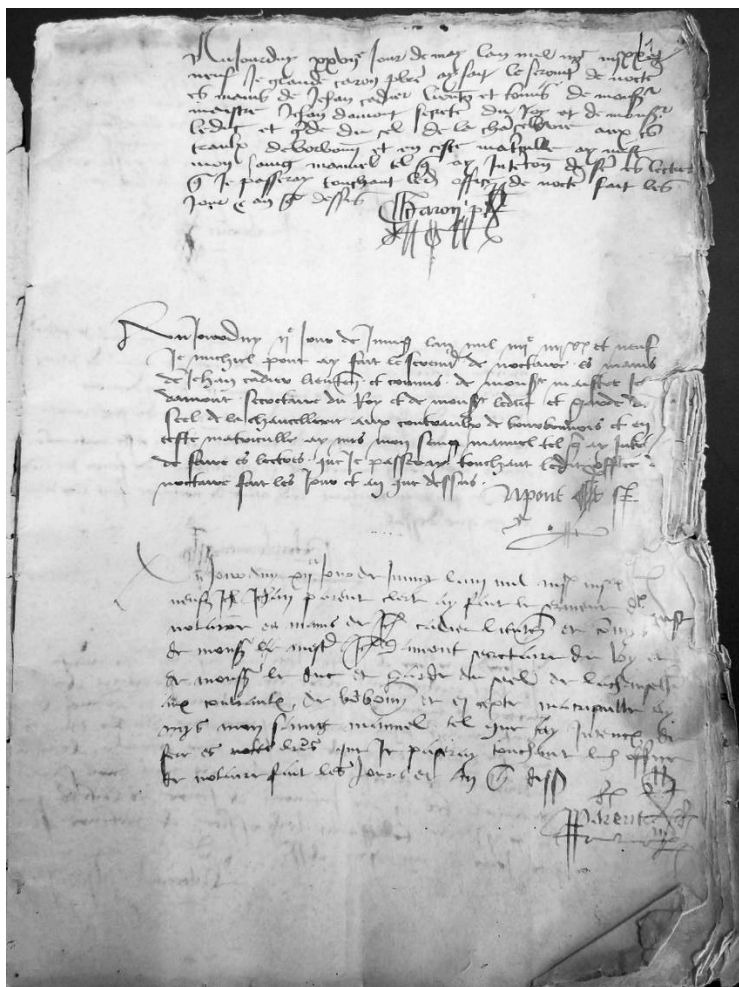 Aujourduy xxvii^e Jour de may lan mil iiii^c iiii^xx et
neuf Je glaude caron pbre ay fait le serment de noct^e
es mains de Jehan cadier lieuten et comis de mons^r
maistre Jehan damont secret^e du Roy et de mons^r
leduc et g^de du scel de la chacellerie aux co
traulx de borbonn et en ceste matriculle ay mis
mon saing manuel tel q ay Inten de fe es lectres
q Je passeray touchant led office de noct^e fait les
Jour et an q dessus
Caron p
Aujourduy ii^e Jour de Juing lan mil iiii^c iiii^xx et neuf
Je michiel pont ay fait le serment de noctaire es mains
de Jehan cadier lieuten et commis de mons^r maistre Je
damont secretaire du Roy et de mons^r leduc et garde du
scel de la chancellerie aux contraulx de bourbonnois et en
ceste matriculle ay mis mon seing manuel tel q ay Inten
de faire es lectres que Je passeray touchant ledit office
noctaire fait les Jour et an que dessus
Mpont
Aujourduy xii^e Jour de Juing lan mil iiii^c iiii^xx
neufz Jehan parent clerc ay fait le serment de
notaire es mains de Jeh cadier lieuten et comis
de mons^r le mestre Jeh damont secretaire du Roy et
de mons^r le duc et garde du scel de lachancell
aux contraulx de borbonn et en cepte matriculle ay
mys mon saing manuel tel que Jay Intencion de
fere es notes que Je passeray touchant led office
de notaire fait les Jour et an q dess
Parent